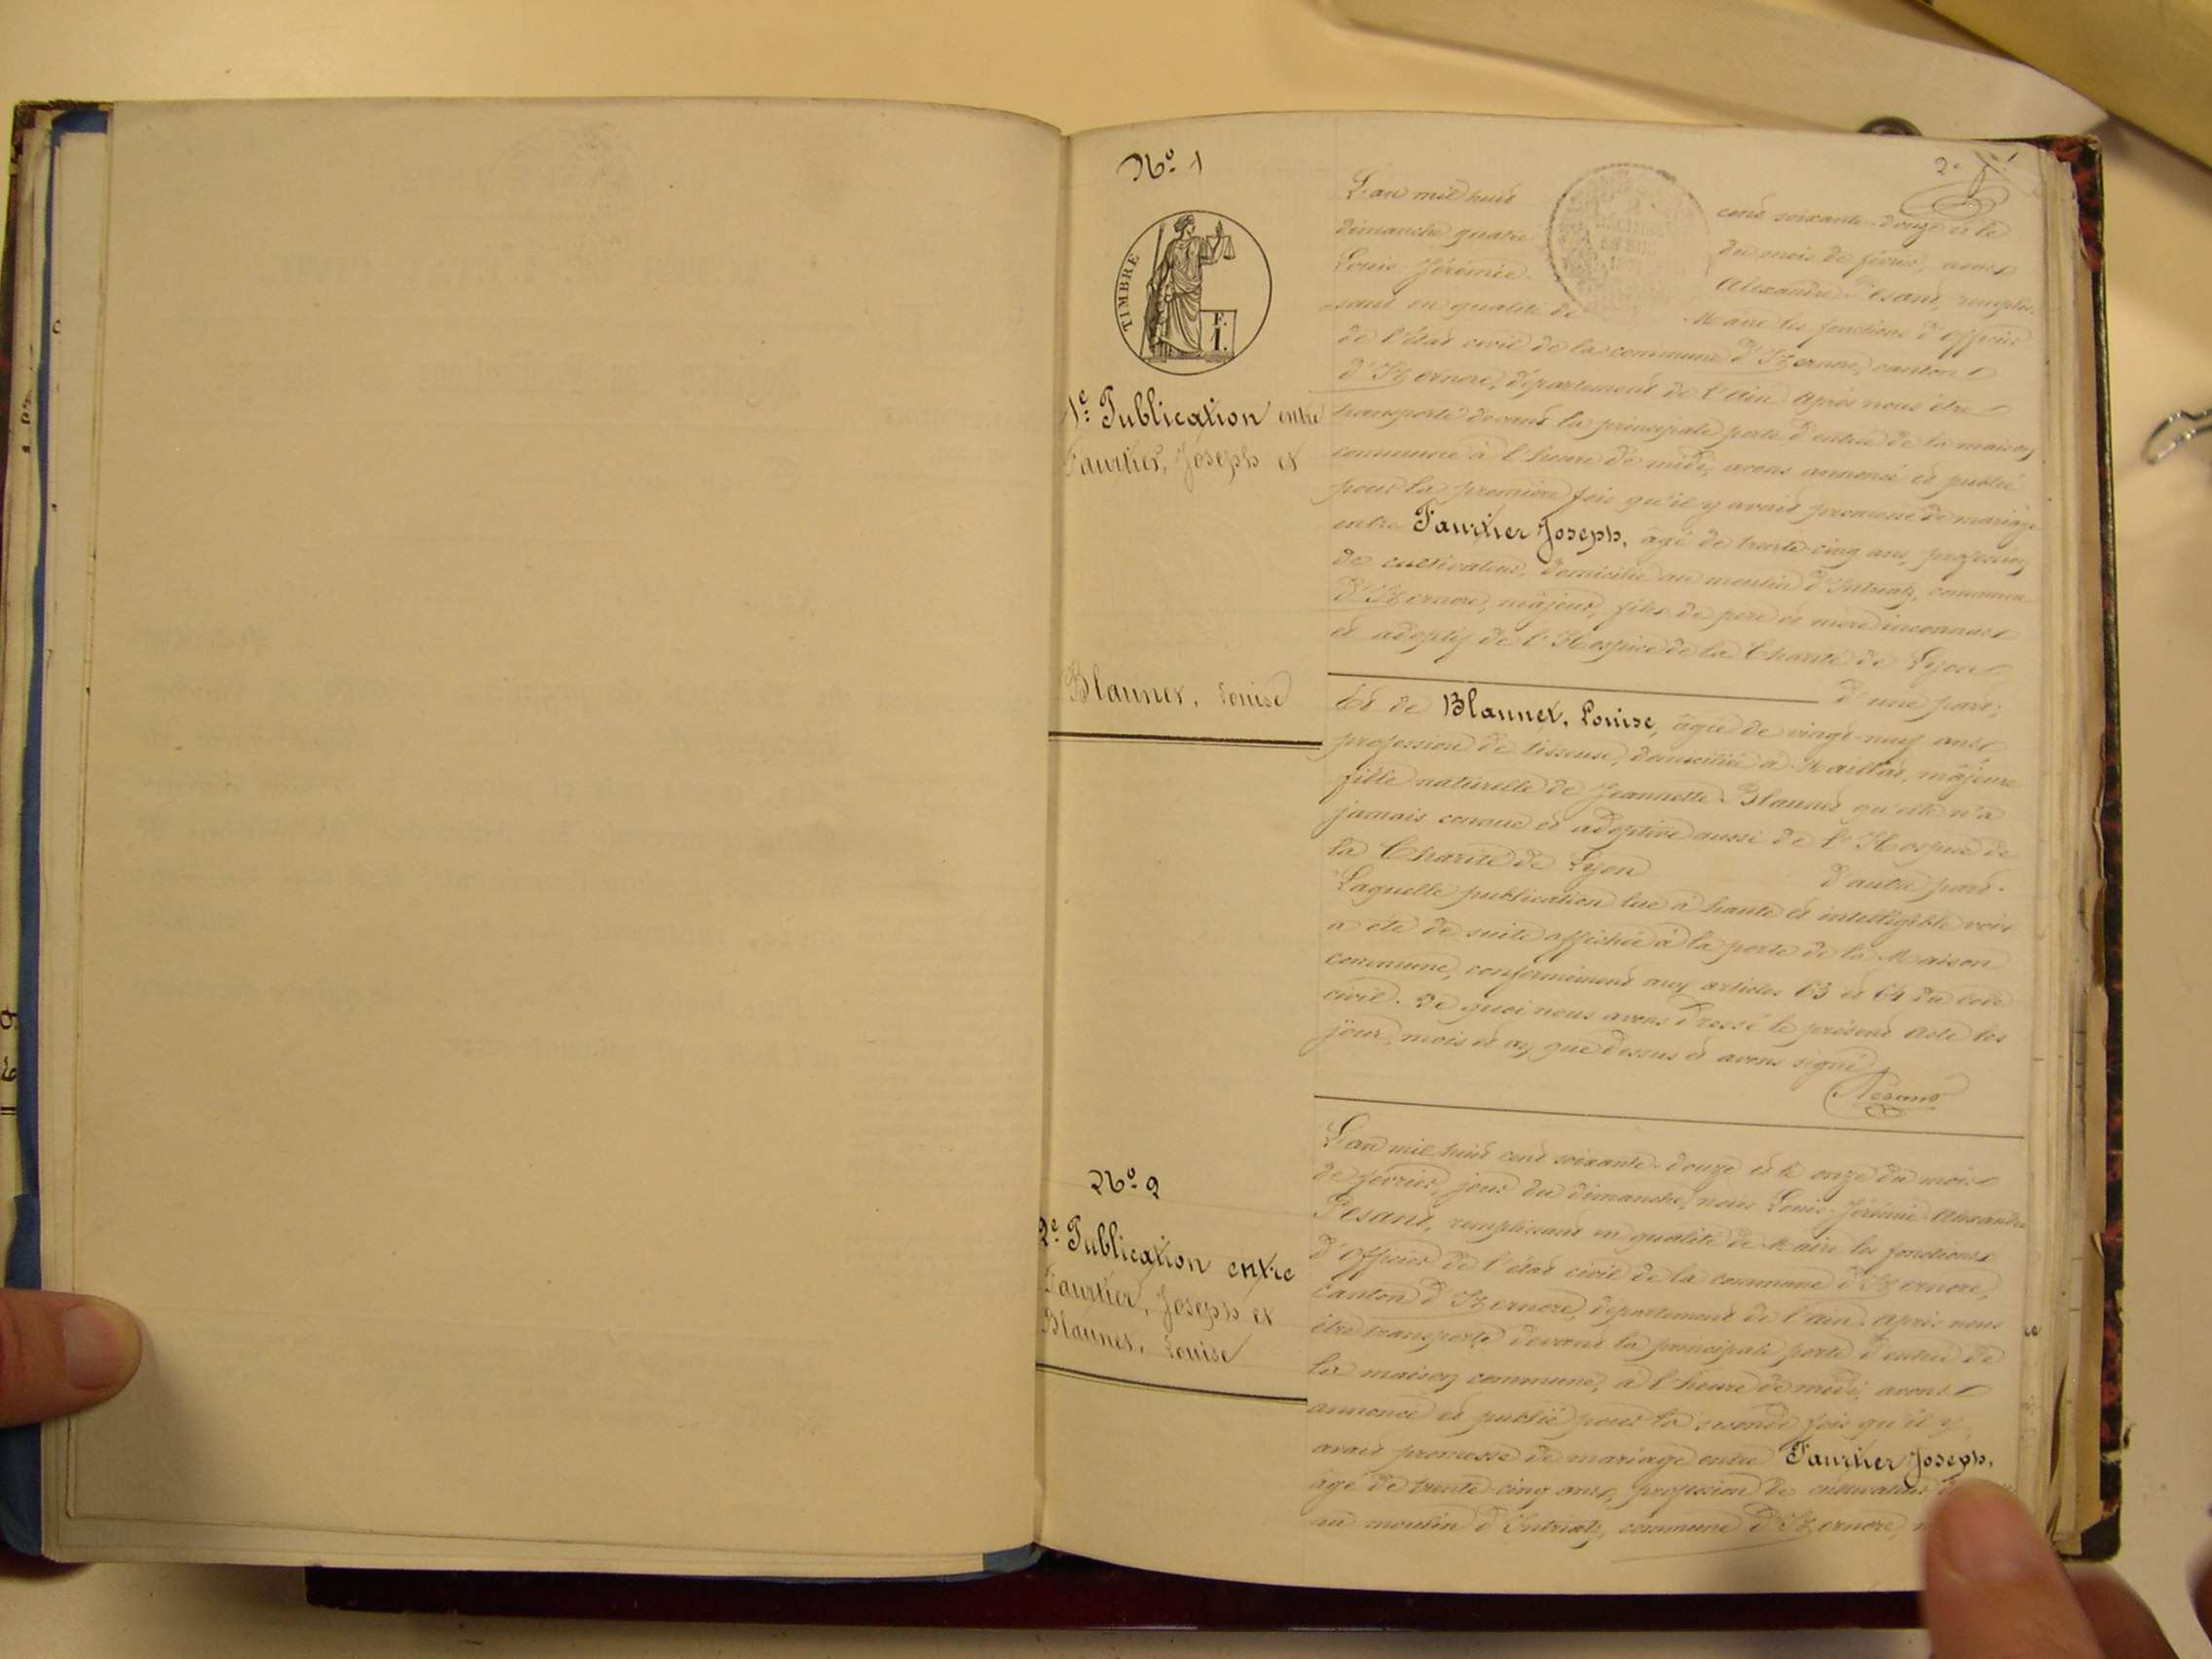 N.º 1
TIMBRE
F.
1.
1.e Publication entre
Faurtier, Joseph et
Blaunet, Louise
L'an mil huit cent soixante-douze et le
dimanche quatre du mois de février, nous
Louis Jérémie Alexandre Pesant, remplis-
sant en qualité de Maire les fonctions d'officier
de l'état civil de la commune d'Izernore, canton
d'Izernore, département de l'Ain Après nous être
transporté devant la principale porte d'entrée de la maison
commune à l'heure de midi, avons annoncé et publié
pour la première fois qu'il y avait promesse de mariage
entre Faurtier Joseph, âgé de trente-cinq ans, profession
de cultivateur, domicilié au moulin d'Intriat, commune
d'Izernore, majeur, fils de père et mère inconnus
et adoptif de l'Hospice de la Charité de Lyon
d'une part;
Et de Blaunet, Louise, âgée de vingt-neuf ans
profession de tisseuse, domiciliée à Maillat, majeure
fille naturelle de Jeannette Blaunet qu'elle n'a
jamais connue et adoptive aussi de l'Hospice de
la Charité de Lyon d'autre part.
Laquelle publication lue à haute et intelligible voix
a été de suite affichée à la porte de la Maison
commune, conformément aux articles 63 et 64 du code
civil. De quoi nous avons dressé le présent acte les
jour, mois et an que dessus et avons signé
Pesant
N.º 2
2.e Publication entre
Faurtier, Joseph et
Blaunet, Louise
L'an mil huit cent soixante-douze et le onze du mois
de février, jour du dimanche, nous Louis-Jérémie-Alexandre
Pesant, remplissant en qualité de Maire les fonctions
d'Officier de l'état civil de la commune d'Izernore,
canton d'Izernore, département de l'ain. après nous
être transporté devant la principale porte d'entrée de
la maison commune, à l'heure de midi, avons
annoncé et publié pour la seconde fois qu'il y
avait promesse de mariage entre Faurtier Joseph,
âgé de trente-cinq ans, profession de cultivateur
au moulin d'Intriat, commune d'Izernore,